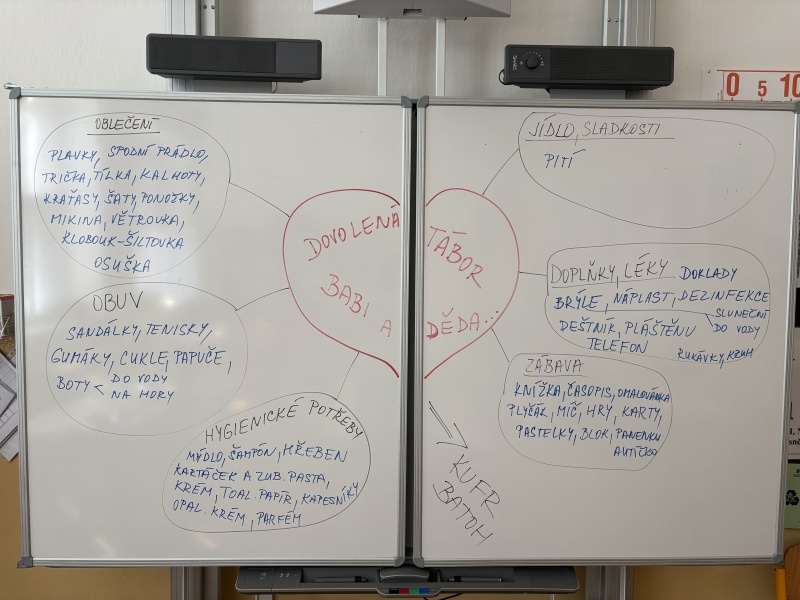 OBLEČENÍ
PLAVKY, SPODNÍ PRÁDLO,
TRIČKA, TÍLKA, KALHOTY,
KRAŤASY, ŠATY, PONOŽKY,
MIKINA, VĚTROVKA,
KLOBOUK-ŠILTOVKA
OSUŠKA
OBUV
SANDÁLKY, TENISKY,
GUMÁKY, CUKLE, PAPUČE,
BOTY < DO VODY
NA HORY
HYGIENICKÉ POTŘEBY
MÝDLO, ŠAMPÓN, HŘEBEN
KARTÁČEK A ZUB. PASTA,
KRÉM, TOAL. PAPÍR, KAPESNÍKY
OPAL. KRÉM, PARFÉM
DOVOLENÁ
BABI A
TÁBOR
DĚDA...
JÍDLO, SLADKOSTI
PITÍ
DOPLŇKY, LÉKY DOKLADY
BRÝLE, NÁPLAST, DEZINFEKCE
SLUNEČNÍ
DO VODY
DEŠTNÍK, PLÁŠTĚNU
TELEFON
RUKÁVKY, KRUH
ZÁBAVA
KNÍŽKA, ČASOPIS, OMALOVÁNKA
PLYŠÁK, MÍČ, HRY, KARTY,
PASTELKY, BLOK, PANENKU
AUTÍČKO
KUFR
BATOH
0 5 10